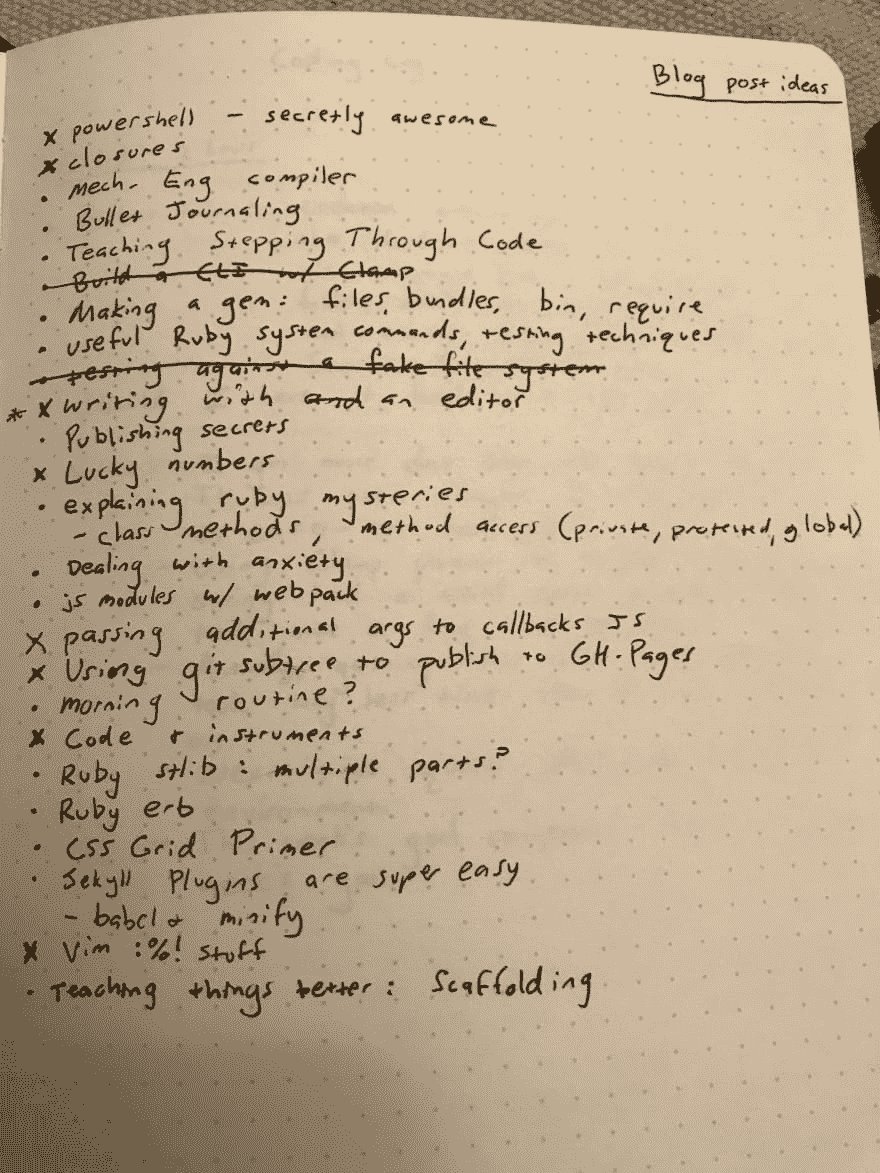 Blog post ideas
x powershell - secretly awesome
x closures
• Mech. Eng compiler
• Bullet Journaling
• Teaching Stepping Through Code
• Build a CLI w/ Clamp
• Making a gem: files, bundles, bin, require
• useful Ruby system commands, testing techniques
• testing against a fake file system
* x writing with and an editor
• Publishing secrets
x Lucky numbers
• explaining ruby mysteries
- class methods, method access (private, protected, global)
• Dealing with anxiety
• js modules w/ webpack
x passing additional args to callbacks JS
x Using git subtree to publish to GH-Pages
• morning routine?
x Code + instruments
• Ruby stlib: multiple parts?
• Ruby erb
• CSS Grid Primer
• Jekyll Plugins are super easy
- babel + minify
x Vim :%! stuff
• Teaching things better: Scaffolding